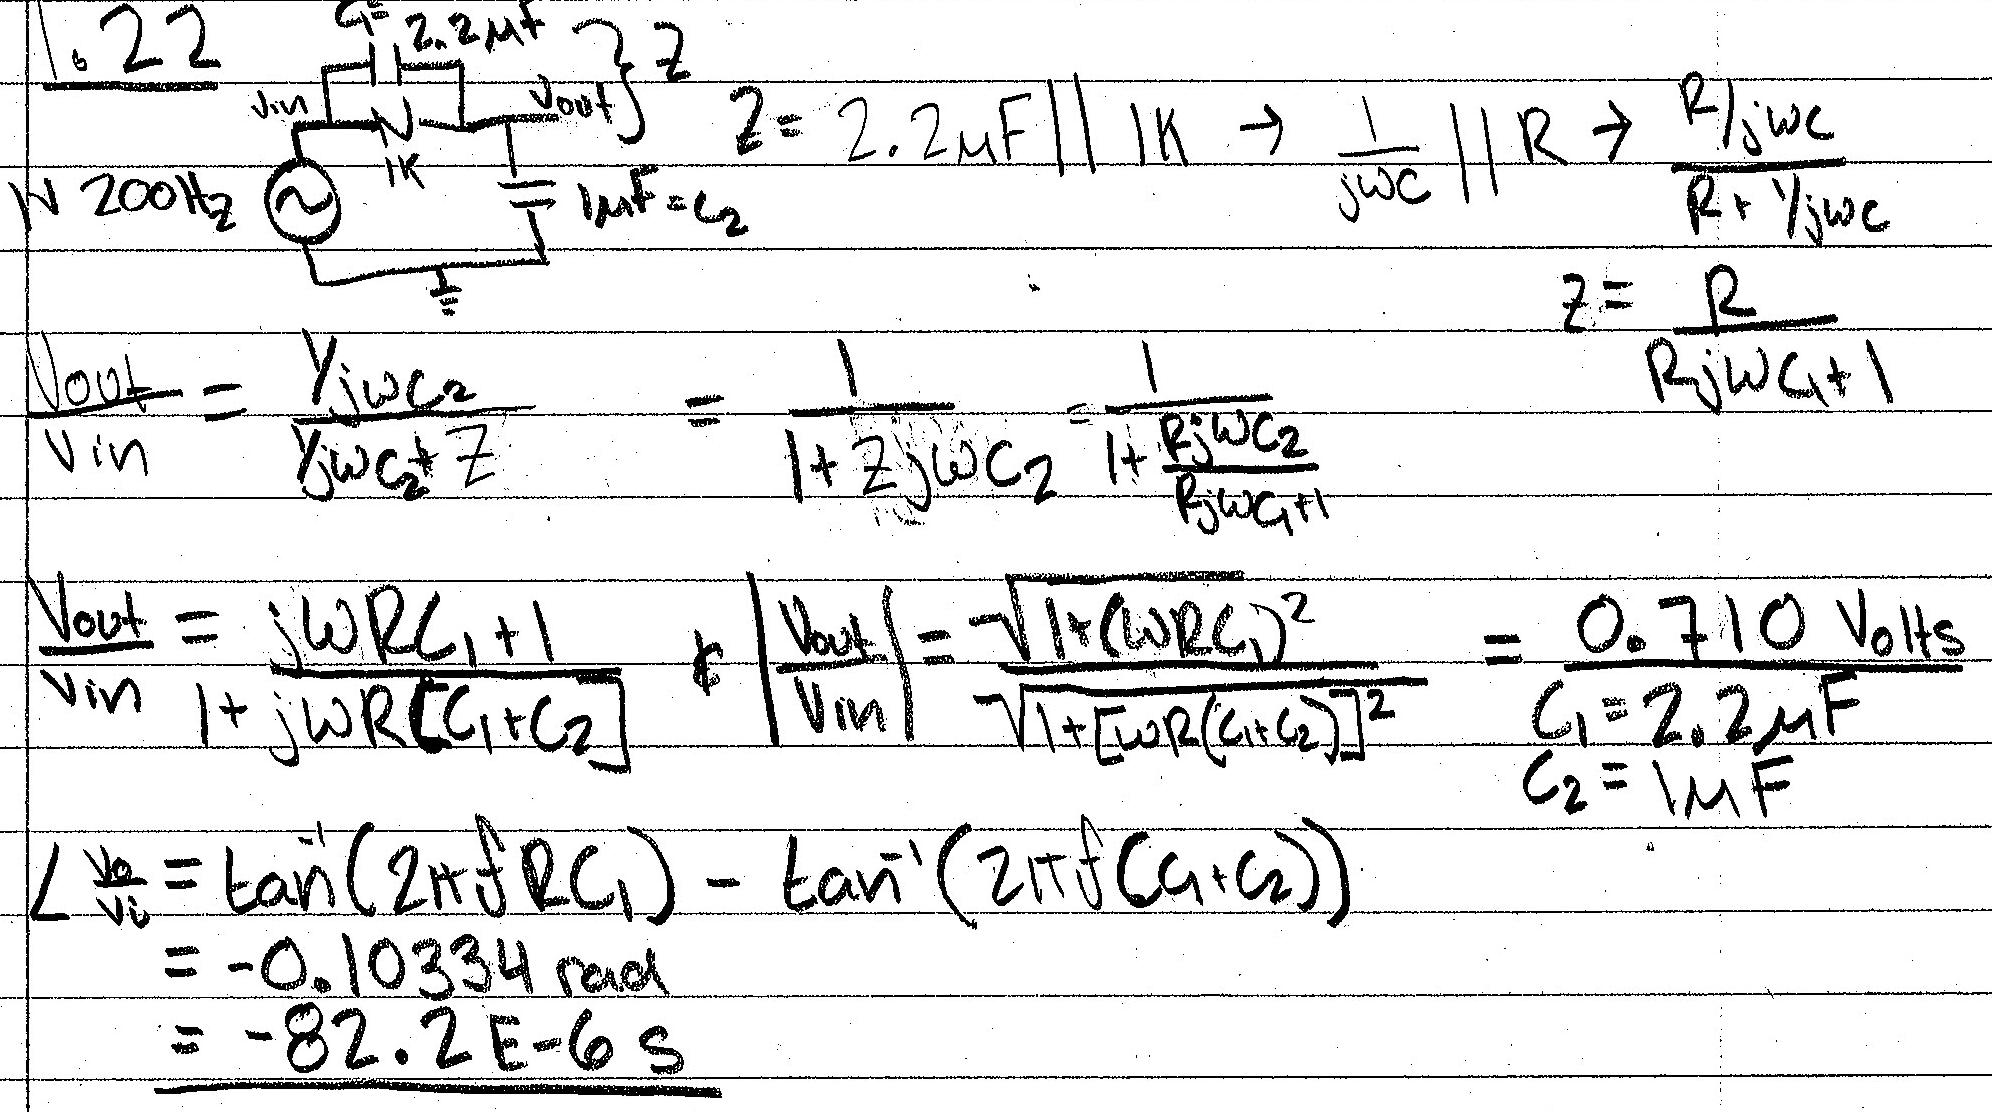 1.22
C1= 2.2μF } Z
Vin
Vout
1K
1V 200Hz
1μF = C2
Z = 2.2μF || 1K → 1/jωC || R → (R/jωC)/(R + 1/jωC)
Z = R/(RjωC1+1)
Vout/Vin = (1/jωC2)/(1/jωC2 + Z) = 1/(1+ZjωC2) = 1/(1+ RjωC2/(RjωC1+1))
Vout/Vin = (jωRC1+1)/(1+jωR[C1+C2]) & |Vout/Vin| = √(1+(ωRC1)²)/√(1+[ωR(C1+C2)]²) = 0.710 Volts
C1=2.2μF
C2=1μF
∠ Vo/Vi = tan⁻¹(2πfRC1) - tan⁻¹(2πf(C1+C2))
= -0.10334 rad
= -82.2E-6 s